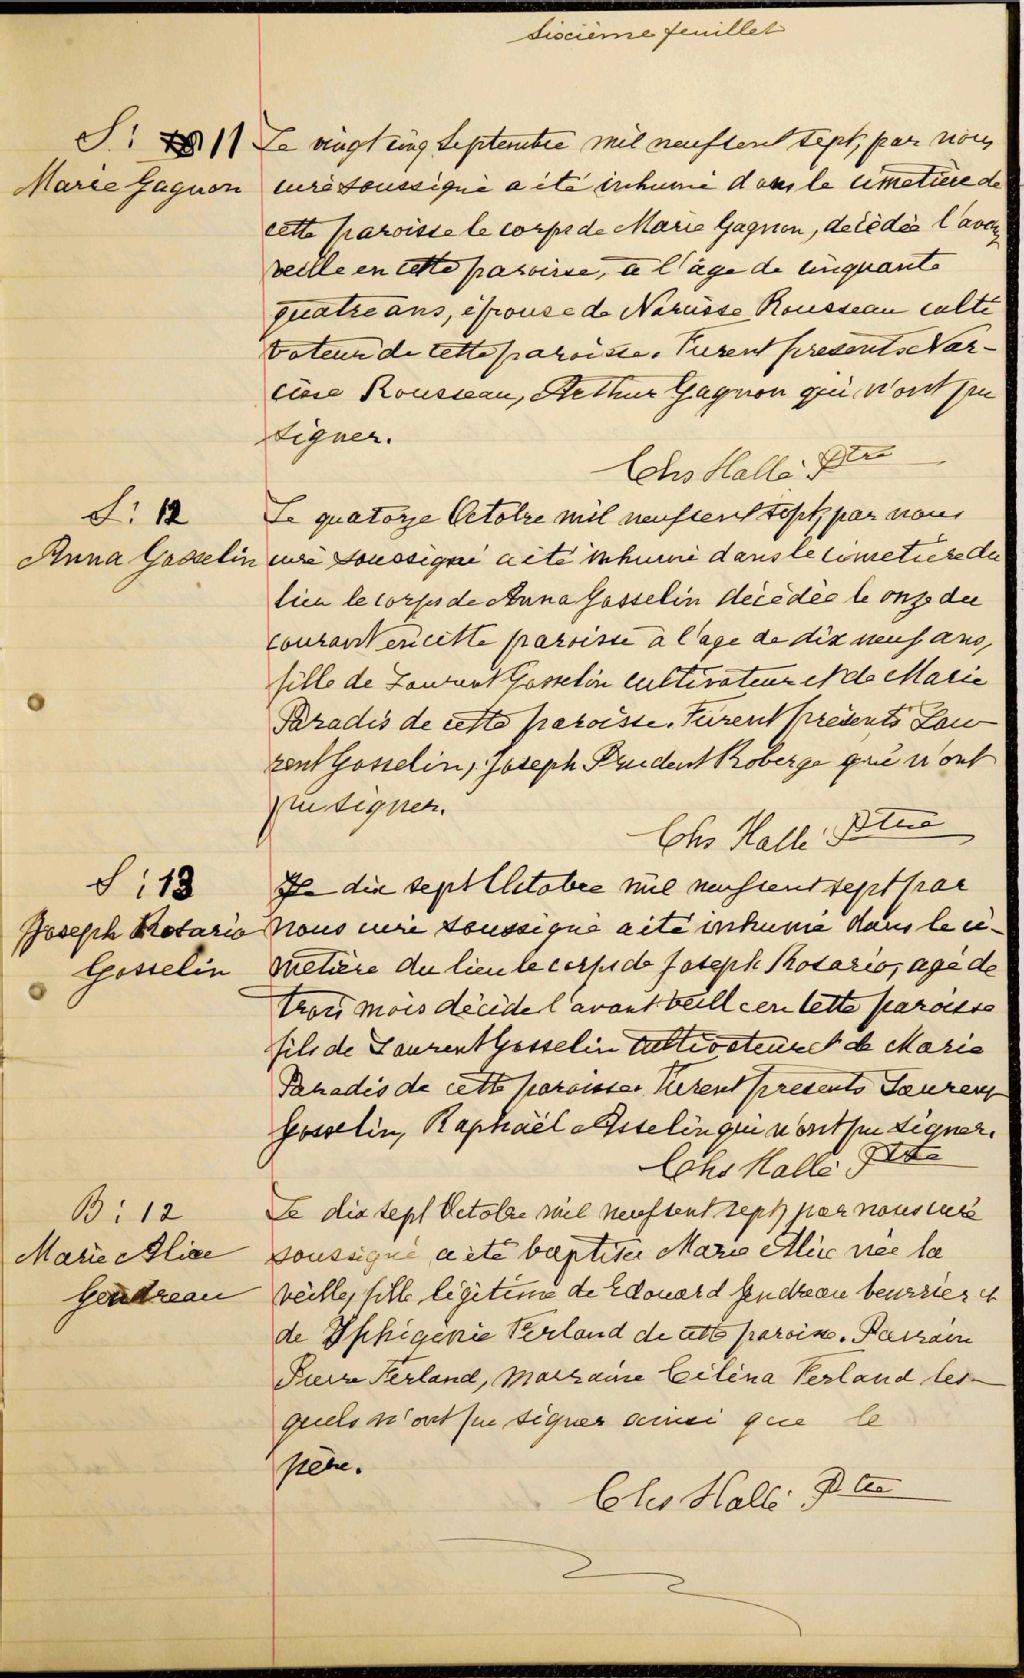 Sixième feuillet
S: 11
Marie Gagnon
Le vingt cinq Septembre mil neuf cent sept, par nous
curé soussigné a été inhumé dans le cimetière de
cette paroisse le corps de Marie Gagnon, décédée l'avant
veille en cette paroisse, à l'âge de cinquante
quatre ans, épouse de Narcisse Rousseau culti
vateur de cette paroisse. Furent présents Nar-
cisse Rousseau, Arthur Gagnon qui n'ont pu
signer.
Chs Hallé Ptre
S: 12
Anna Gosselin
Le quatorze Octobre mil neuf cent sept, par nous
curé soussigné a été inhumé dans le cimetière du
lieu le corps de Anna Gosselin décédée le onze du
courant en cette paroisse à l'age de dix neuf ans,
fille de Laurent Gosselin cultivateur et de Marie
Paradis de cette paroisse. Furent présents Lau-
rent Gosselin, Joseph Prudent Roberge qui n'ont
pu signer.
Chs Hallé Ptre
S: 13
Joseph Rosario
Gosselin
Le dix sept Octobre mil neuf cent sept par
nous curé soussigné a été inhumé dans le ci-
metière du lieu le corps de Joseph Rosario, agé de
trois mois décédé l'avant veille en cette paroisse
fils de Laurent Gosselin cultivateur et de Marie
Paradis de cette paroisse. Furent presents Laurent
Gosselin, Raphaël Asselin qui n'ont pu signer.
Chs Hallé Ptre
B: 12
Marie Alice
Gendreau
Le dix sept Octobre mil neuf cent sept, par nous curé
soussigné a été baptisée Marie Alice née la
veille, fille légitime de Edouard Gendreau beurrier et
de Iphigénie Ferland de cette paroisse. Parrain
Pierre Ferland, marraine Céléna Ferland les-
quels n'ont pu signer ainsi que le
père.
Chs Hallé Ptre